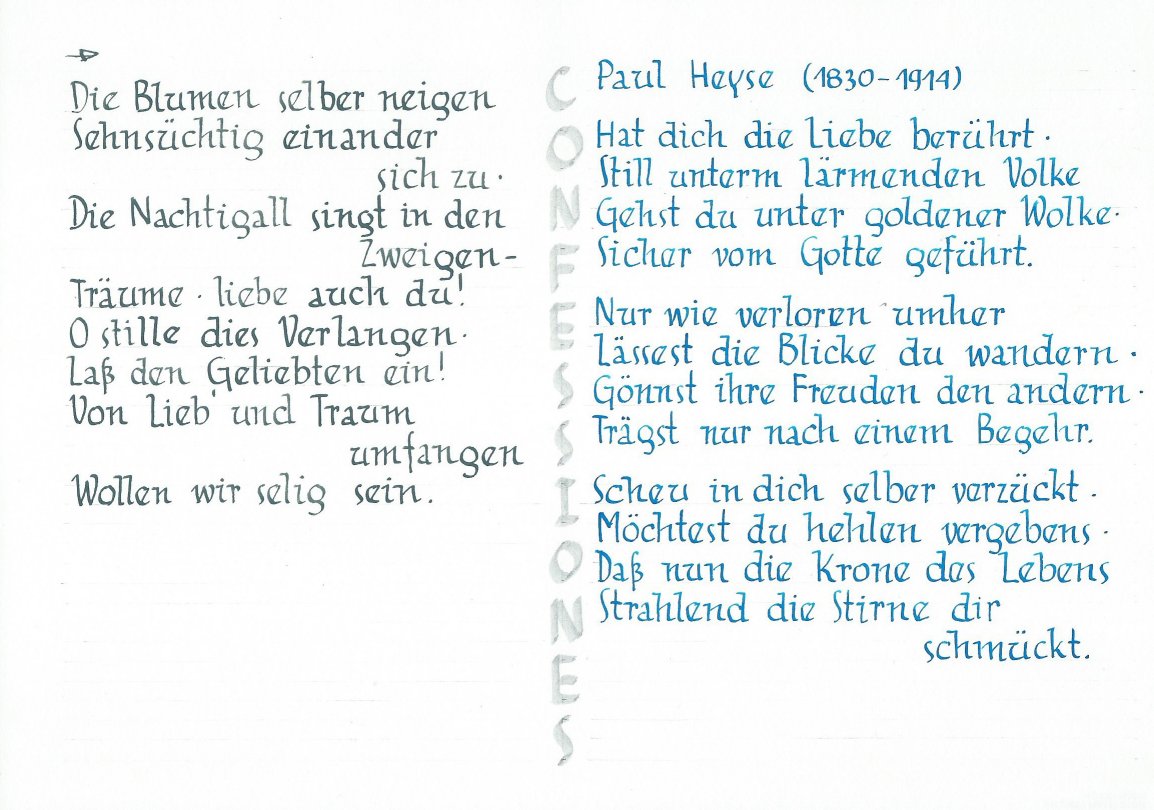 Die Blumen selber neigen
Sehnsüchtig einander
sich zu·
Die Nachtigall singt in den
Zweigen-
Träume · liebe auch du!
O stille dies Verlangen·
Laß den Geliebten ein!
Von Lieb' und Traum
umfangen
Wollen wir selig sein.
CONFESSIONES
Paul Heyse (1830-1914)
Hat dich die Liebe berührt·
Still unterm lärmenden Volke
Gehst du unter goldener Wolke·
Sicher vom Gotte geführt.
Nur wie verloren umher
Lässest die Blicke du wandern·
Gönnst ihre Freuden den andern·
Trägst nur nach einem Begehr.
Scheu in dich selber verzückt·
Möchtest du hehlen vergebens·
Daß nun die Krone des Lebens
Strahlend die Stirne dir
schmückt.